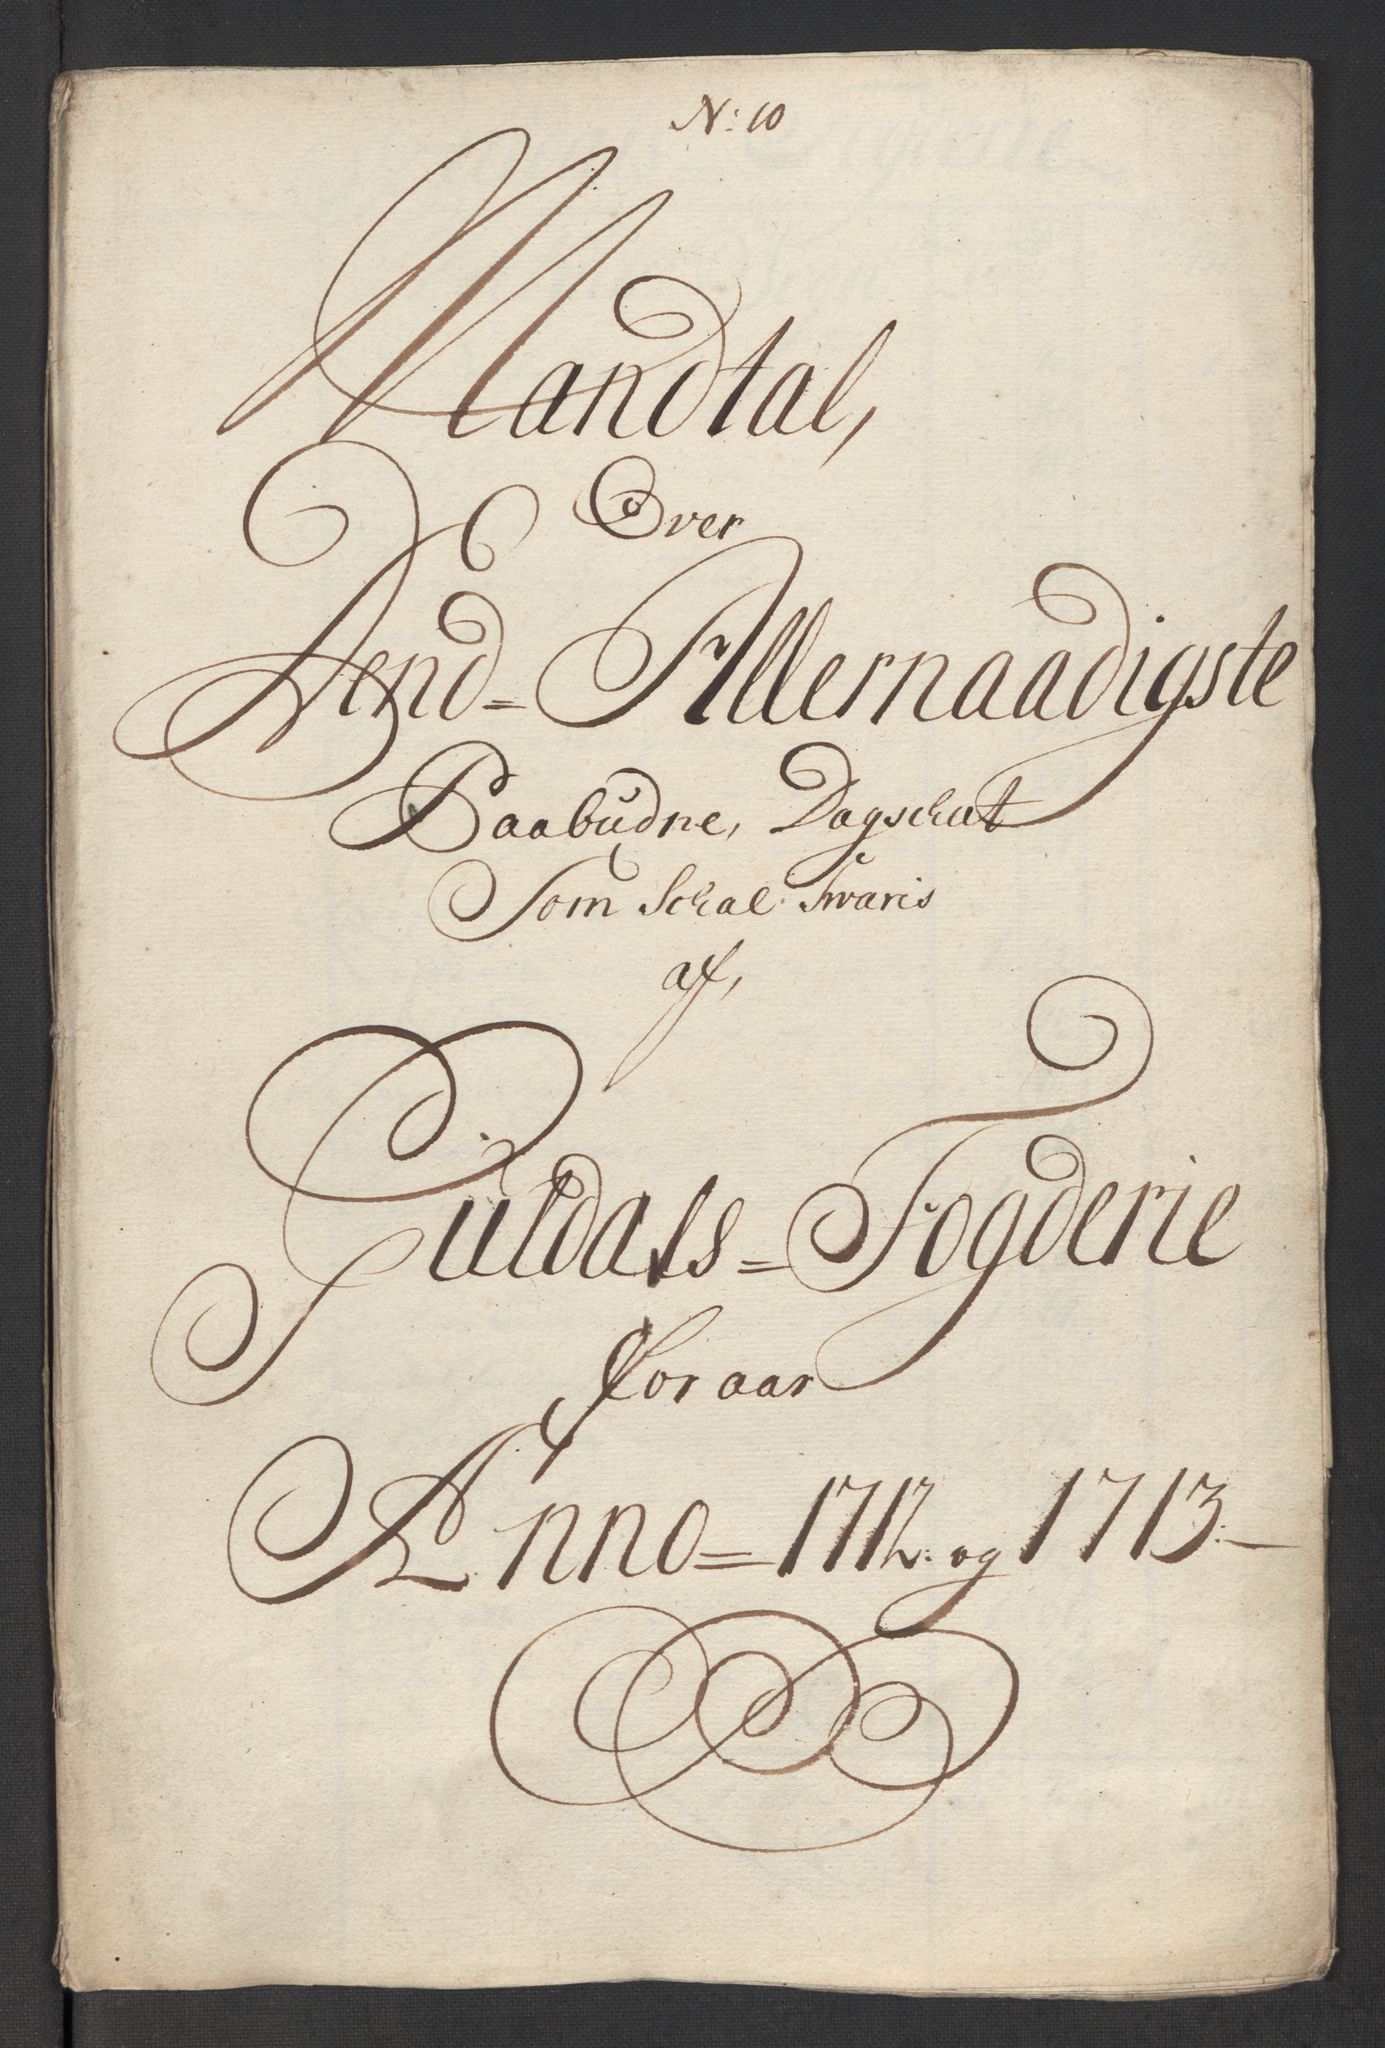 N: 10
Mandtal,
Over
Dend = Allernaadigste
Paabudne, Dagschat
Som Schal Swaris
af,
Guldals = Fogderie
for aar
Anno = 1712. og 1713.